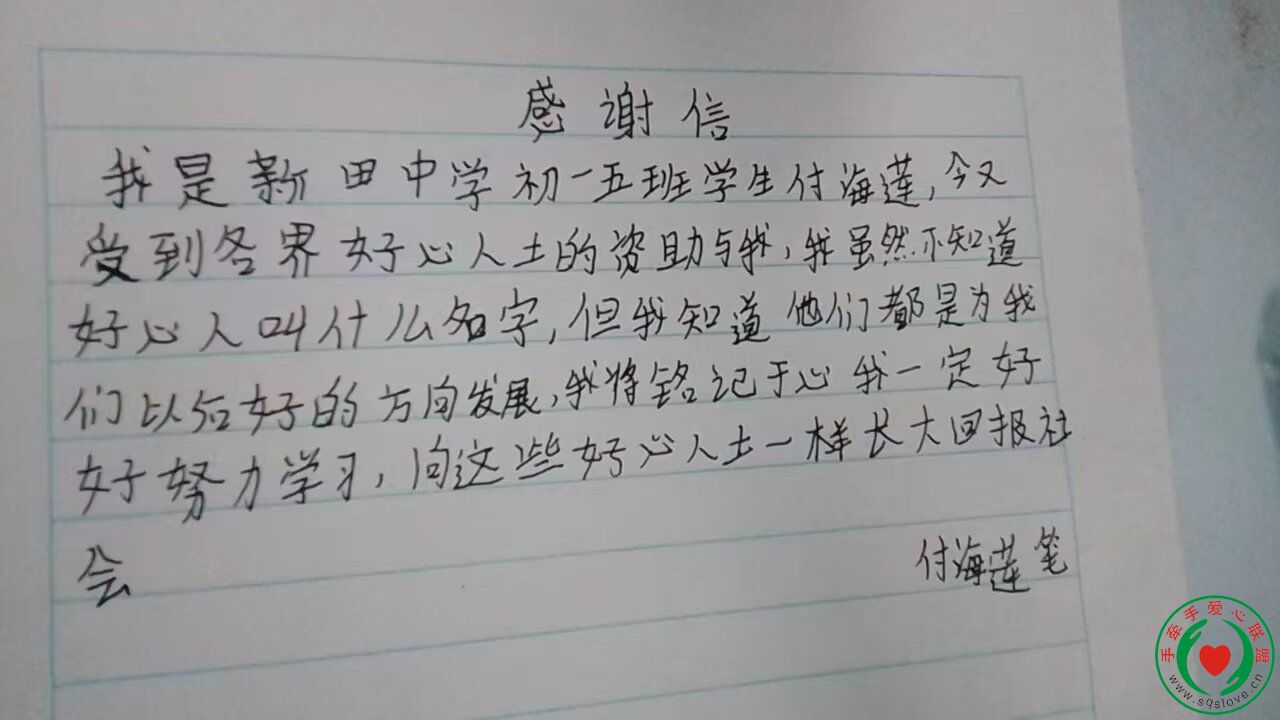 感谢信
我是新田中学初一五班学生付海莲,今又
受到各界好心人士的资助与我,我虽然不知道
好心人叫什么名字,但我知道他们都是为我
们以后好的方向发展,我将铭记于心我一定好
好努力学习,向这些好心人士一样长大回报社
会
付海莲笔
手牵手爱心联盟
www.sqslove.cn